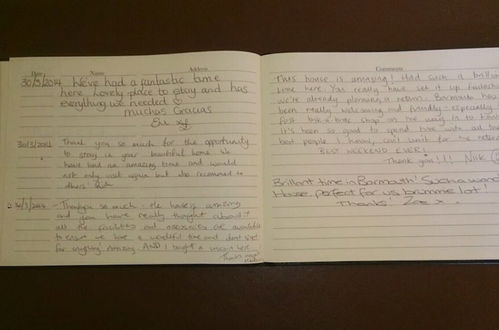 Date Name Address
30/3/2014 We've had a fantastic time
here. Lovely place to stay and has
everything we needed
muchos Gracias
30/3/2014 Thank you so much for the opportunity
to stay in your beautiful home. We
have had an amazing time and would
not only visit again but also recommend to
others
Thankyou so much - the house is amazing
and you have really thought about
all the facilities and necessities are available
to ensure we have a wonderful time and dont want
for anything. Amazing. AND I bought a
Comments
This house is amazing! Had such a
time here. You really have let it up
we're already planning a return. Barmouth has
been really welcoming and friendly - especially
bike shop on the way in to
It's been so good to spend time with all the
best people I know, can't wait for the return
BEST WEEKEND EVER!
Thank you!!! Nick
Brilliant time in Barmouth! Such a
House perfect for us brummie lot!
Thanks Zoe x